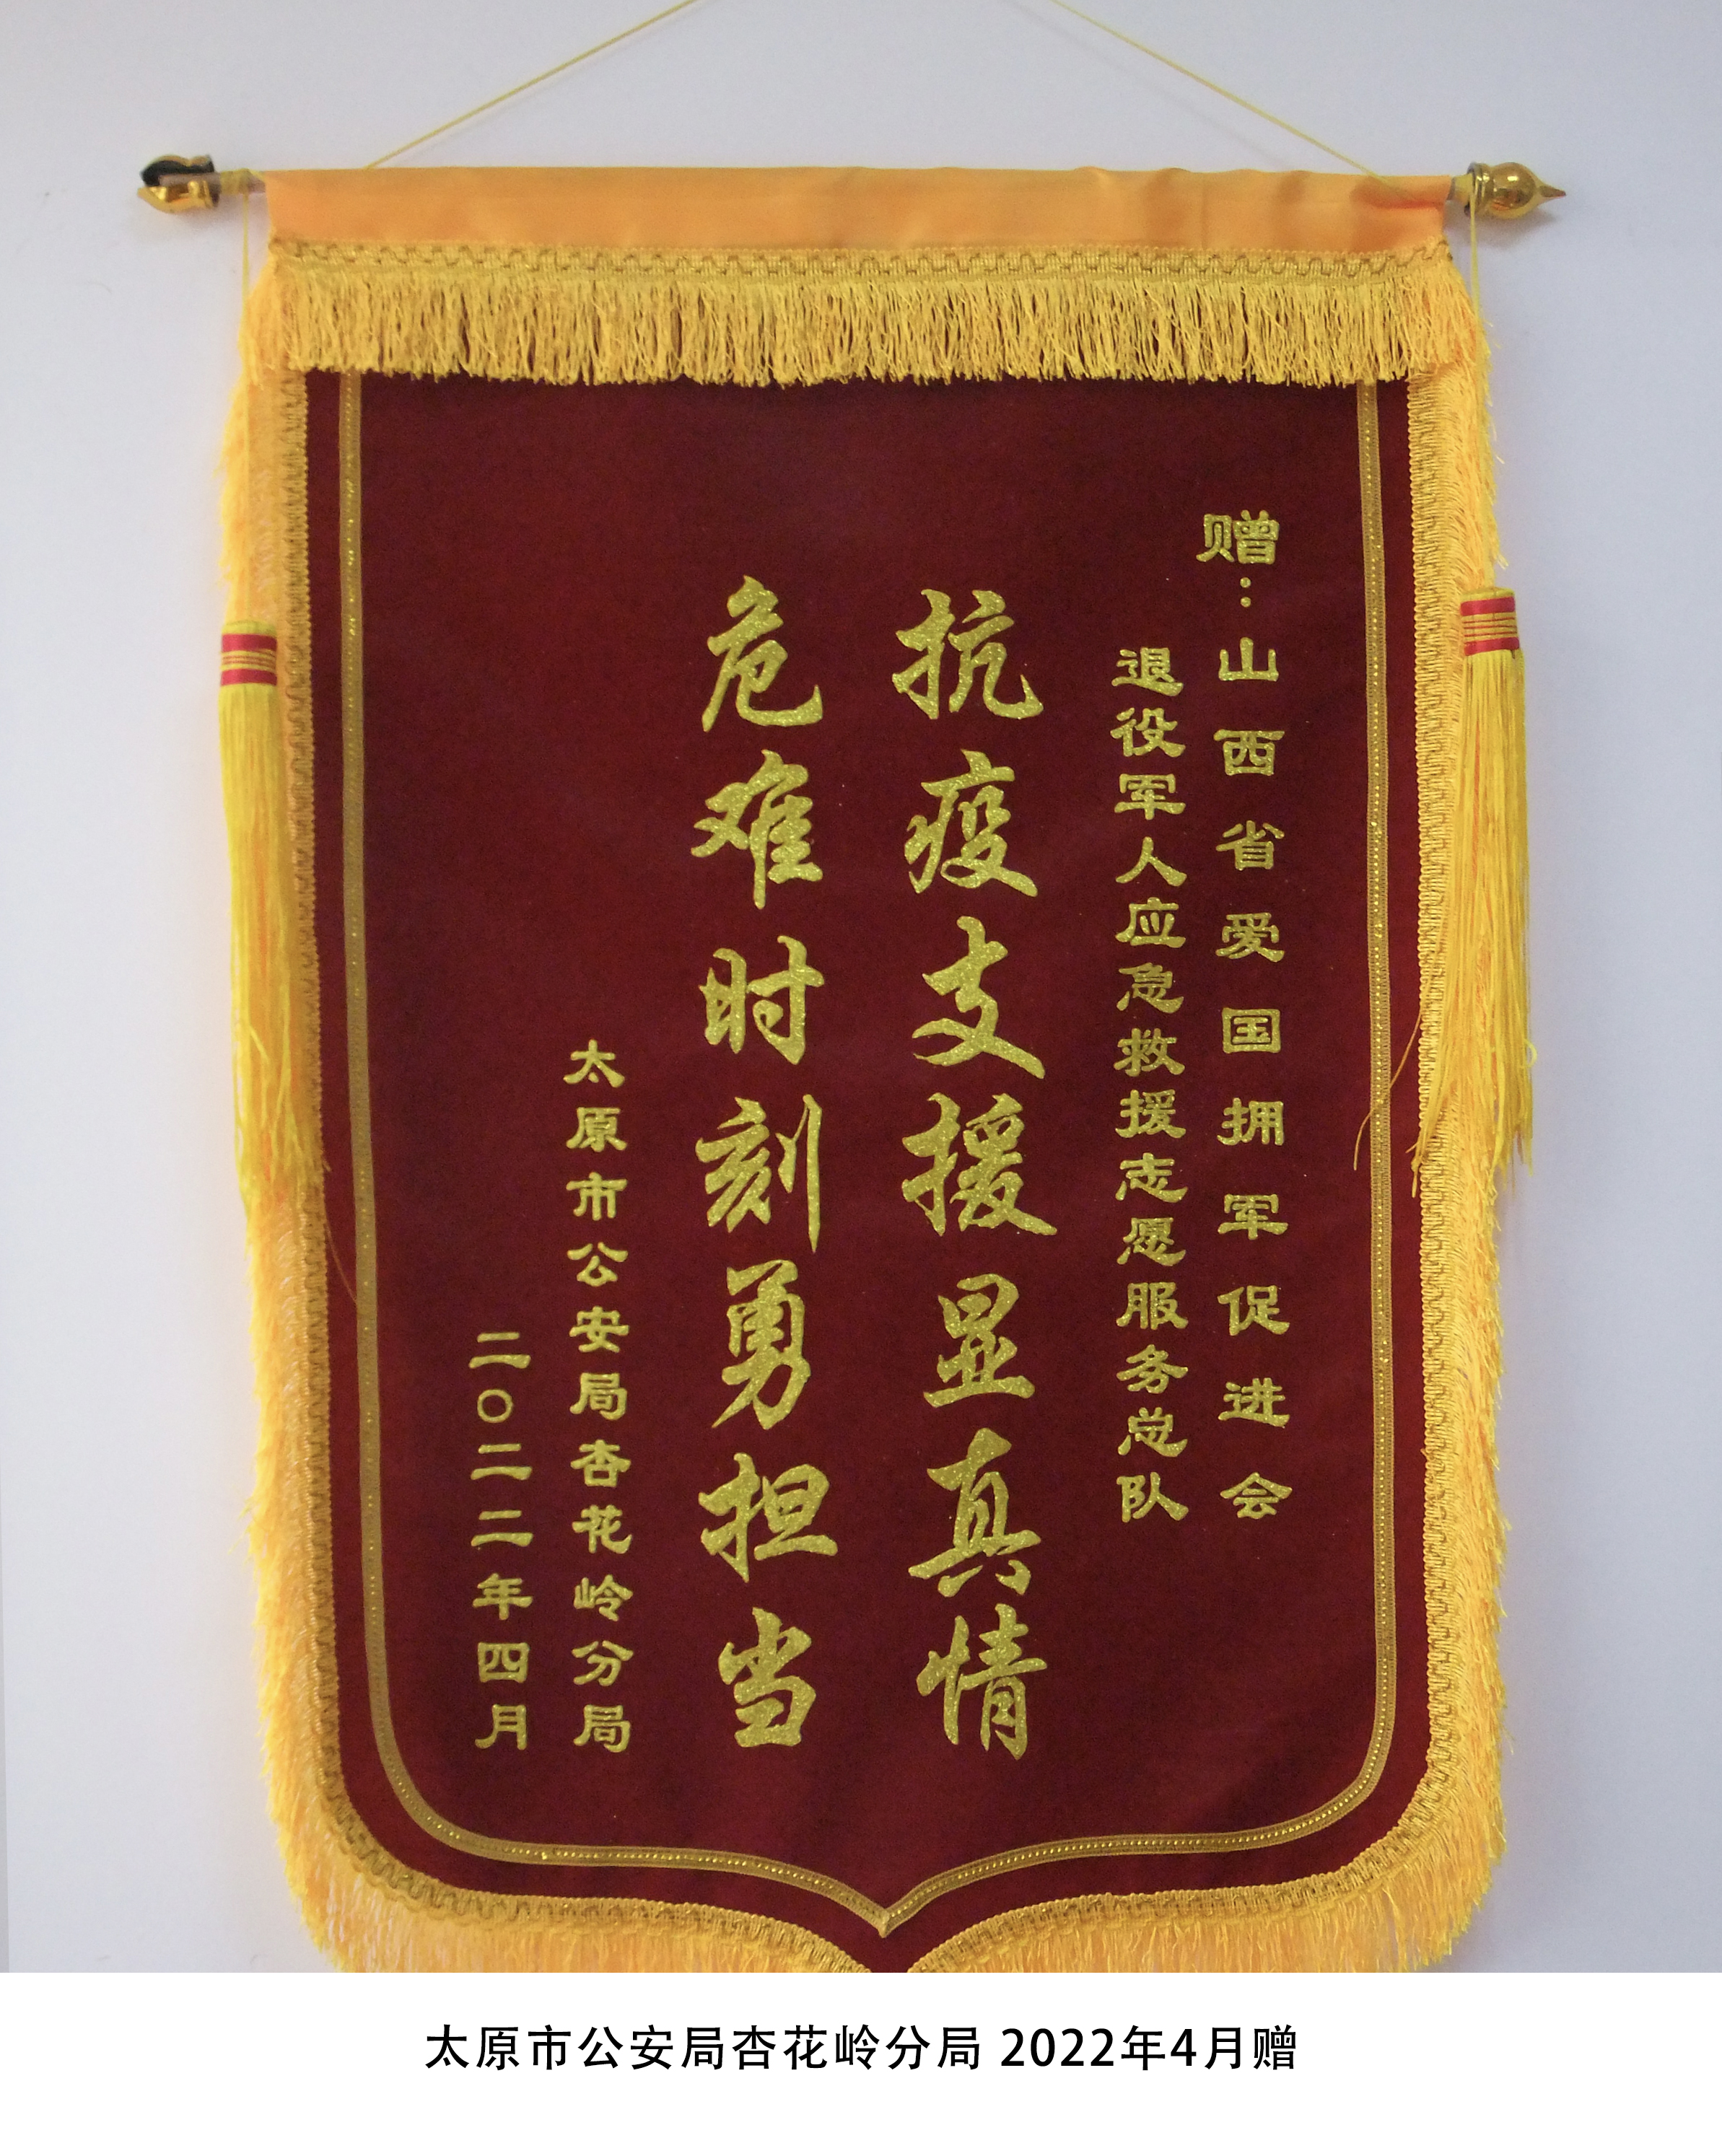 赠：山西省爱国拥军促进会
退役军人应急救援志愿服务总队
抗疫支援显真情
危难时刻勇担当
太原市公安局杏花岭分局
二〇二二年四月
太原市公安局杏花岭分局 2022年4月赠